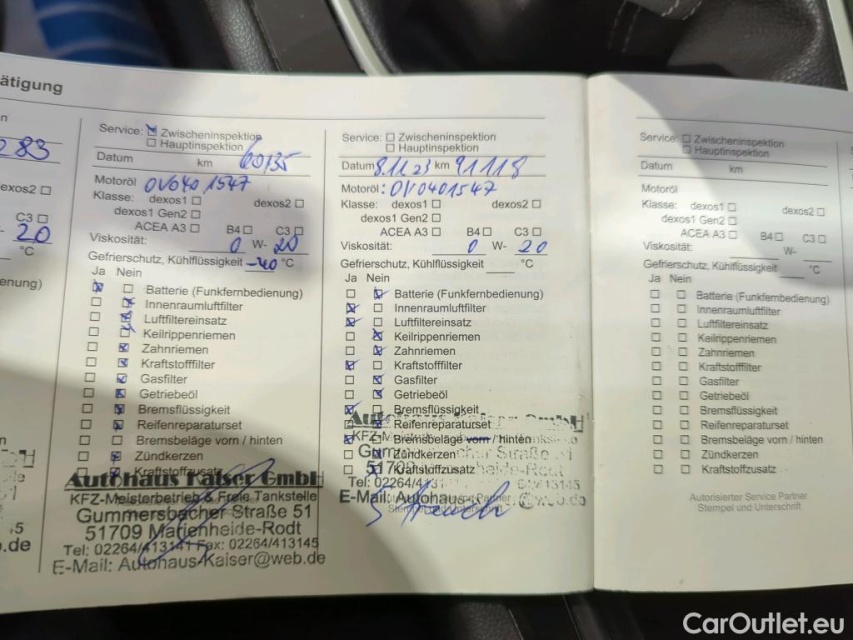 ätigung
n
283
exos2 ☐
C3 ☐
20
°C
enung)
n
.5
.de
Service: ☒ Zwischeninspektion
☐ Hauptinspektion
Datum km 60135
Motoröl OV0401547
Klasse: dexos1 ☐ dexos2 ☐
dexos1 Gen2 ☐
ACEA A3 ☐ B4 ☐ C3 ☐
Viskosität: 0 W- 20
Gefrierschutz, Kühlflüssigkeit -40 °C
Ja Nein
☒ ☐ Batterie (Funkfernbedienung)
☐ ☒ Innenraumluftfilter
☐ ☒ Luftfiltereinsatz
☐ ☒ Keilrippenriemen
☐ ☒ Zahnriemen
☐ ☒ Kraftstofffilter
☐ ☒ Gasfilter
☐ ☒ Getriebeöl
☐ ☒ Bremsflüssigkeit
☐ ☒ Reifenreparaturset
☐ ☐ Bremsbeläge vorn / hinten
☐ ☒ Zündkerzen
☐ ☒ Kraftstoffzusatz
Autohaus Kaiser GmbH
KFZ-Meisterbetrieb & Freie Tankstelle
Gummersbacher Straße 51
51709 Marienheide-Rodt
Tel: 02264/413141 Fax: 02264/413145
E-Mail: Autohaus-Kaiser@web.de
Service: ☐ Zwischeninspektion
☐ Hauptinspektion
Datum 8.11.23 km 91118
Motoröl: OV0401547
Klasse: dexos1 ☐ dexos2 ☐
dexos1 Gen2 ☐
ACEA A3 ☐ B4 ☐ C3 ☐
Viskosität: 0 W- 20
Gefrierschutz, Kühlflüssigkeit °C
Ja Nein
☐ ☒ Batterie (Funkfernbedienung)
☒ ☐ Innenraumluftfilter
☒ ☐ Luftfiltereinsatz
☐ ☒ Keilrippenriemen
☐ ☒ Zahnriemen
☒ ☐ Kraftstofffilter
☐ ☒ Gasfilter
☐ ☒ Getriebeöl
☒ ☐ Bremsflüssigkeit
Autohaus Kaiser GmbH
☐ ☒ Reifenreparaturset
☒ ☐ Bremsbeläge vorn / hinten
☐ ☒ Zündkerzen
51709 Marienheide-Rodt
☐ ☒ Kraftstoffzusatz
Tel: 02264/ 02264/413145
E-Mail: Autohaus- @web.de
Service: ☐ Zwischeninspektion
☐ Hauptinspektion
Datum km
Motoröl
Klasse: dexos1 ☐ dexos2 ☐
dexos1 Gen2 ☐
ACEA A3 ☐ B4 ☐ C3 ☐
Viskosität: W-
Gefrierschutz, Kühlflüssigkeit °C
Ja Nein
☐ ☐ Batterie (Funkfernbedienung)
☐ ☐ Innenraumluftfilter
☐ ☐ Luftfiltereinsatz
☐ ☐ Keilrippenriemen
☐ ☐ Zahnriemen
☐ ☐ Kraftstofffilter
☐ ☐ Gasfilter
☐ ☐ Getriebeöl
☐ ☐ Bremsflüssigkeit
☐ ☐ Reifenreparaturset
☐ ☐ Bremsbeläge vorn / hinten
☐ ☐ Zündkerzen
☐ ☐ Kraftstoffzusatz
Autorisierter Service Partner
Stempel und Unterschrift
CarOutlet.eu